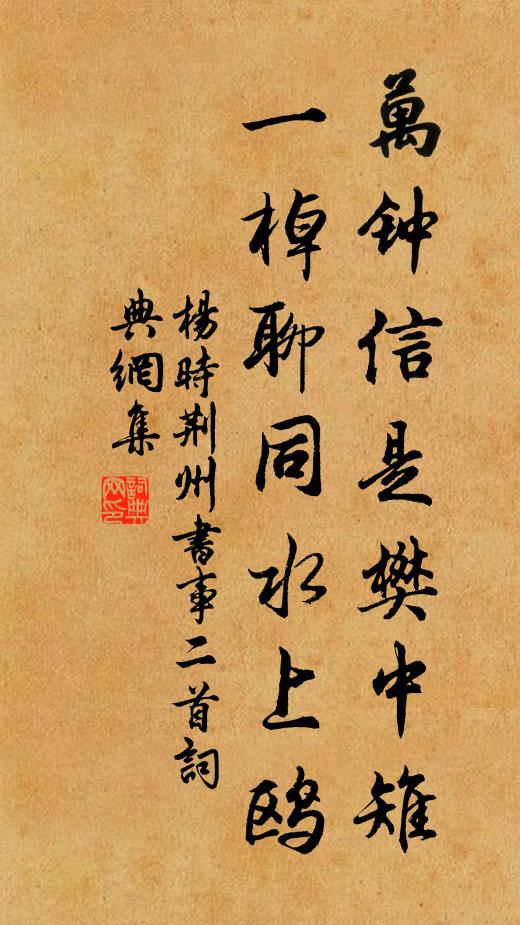 萬钟信是樊中雉
一棹聊同水上鸥
楊時荆州書事二首詞
典網集
詞典网印